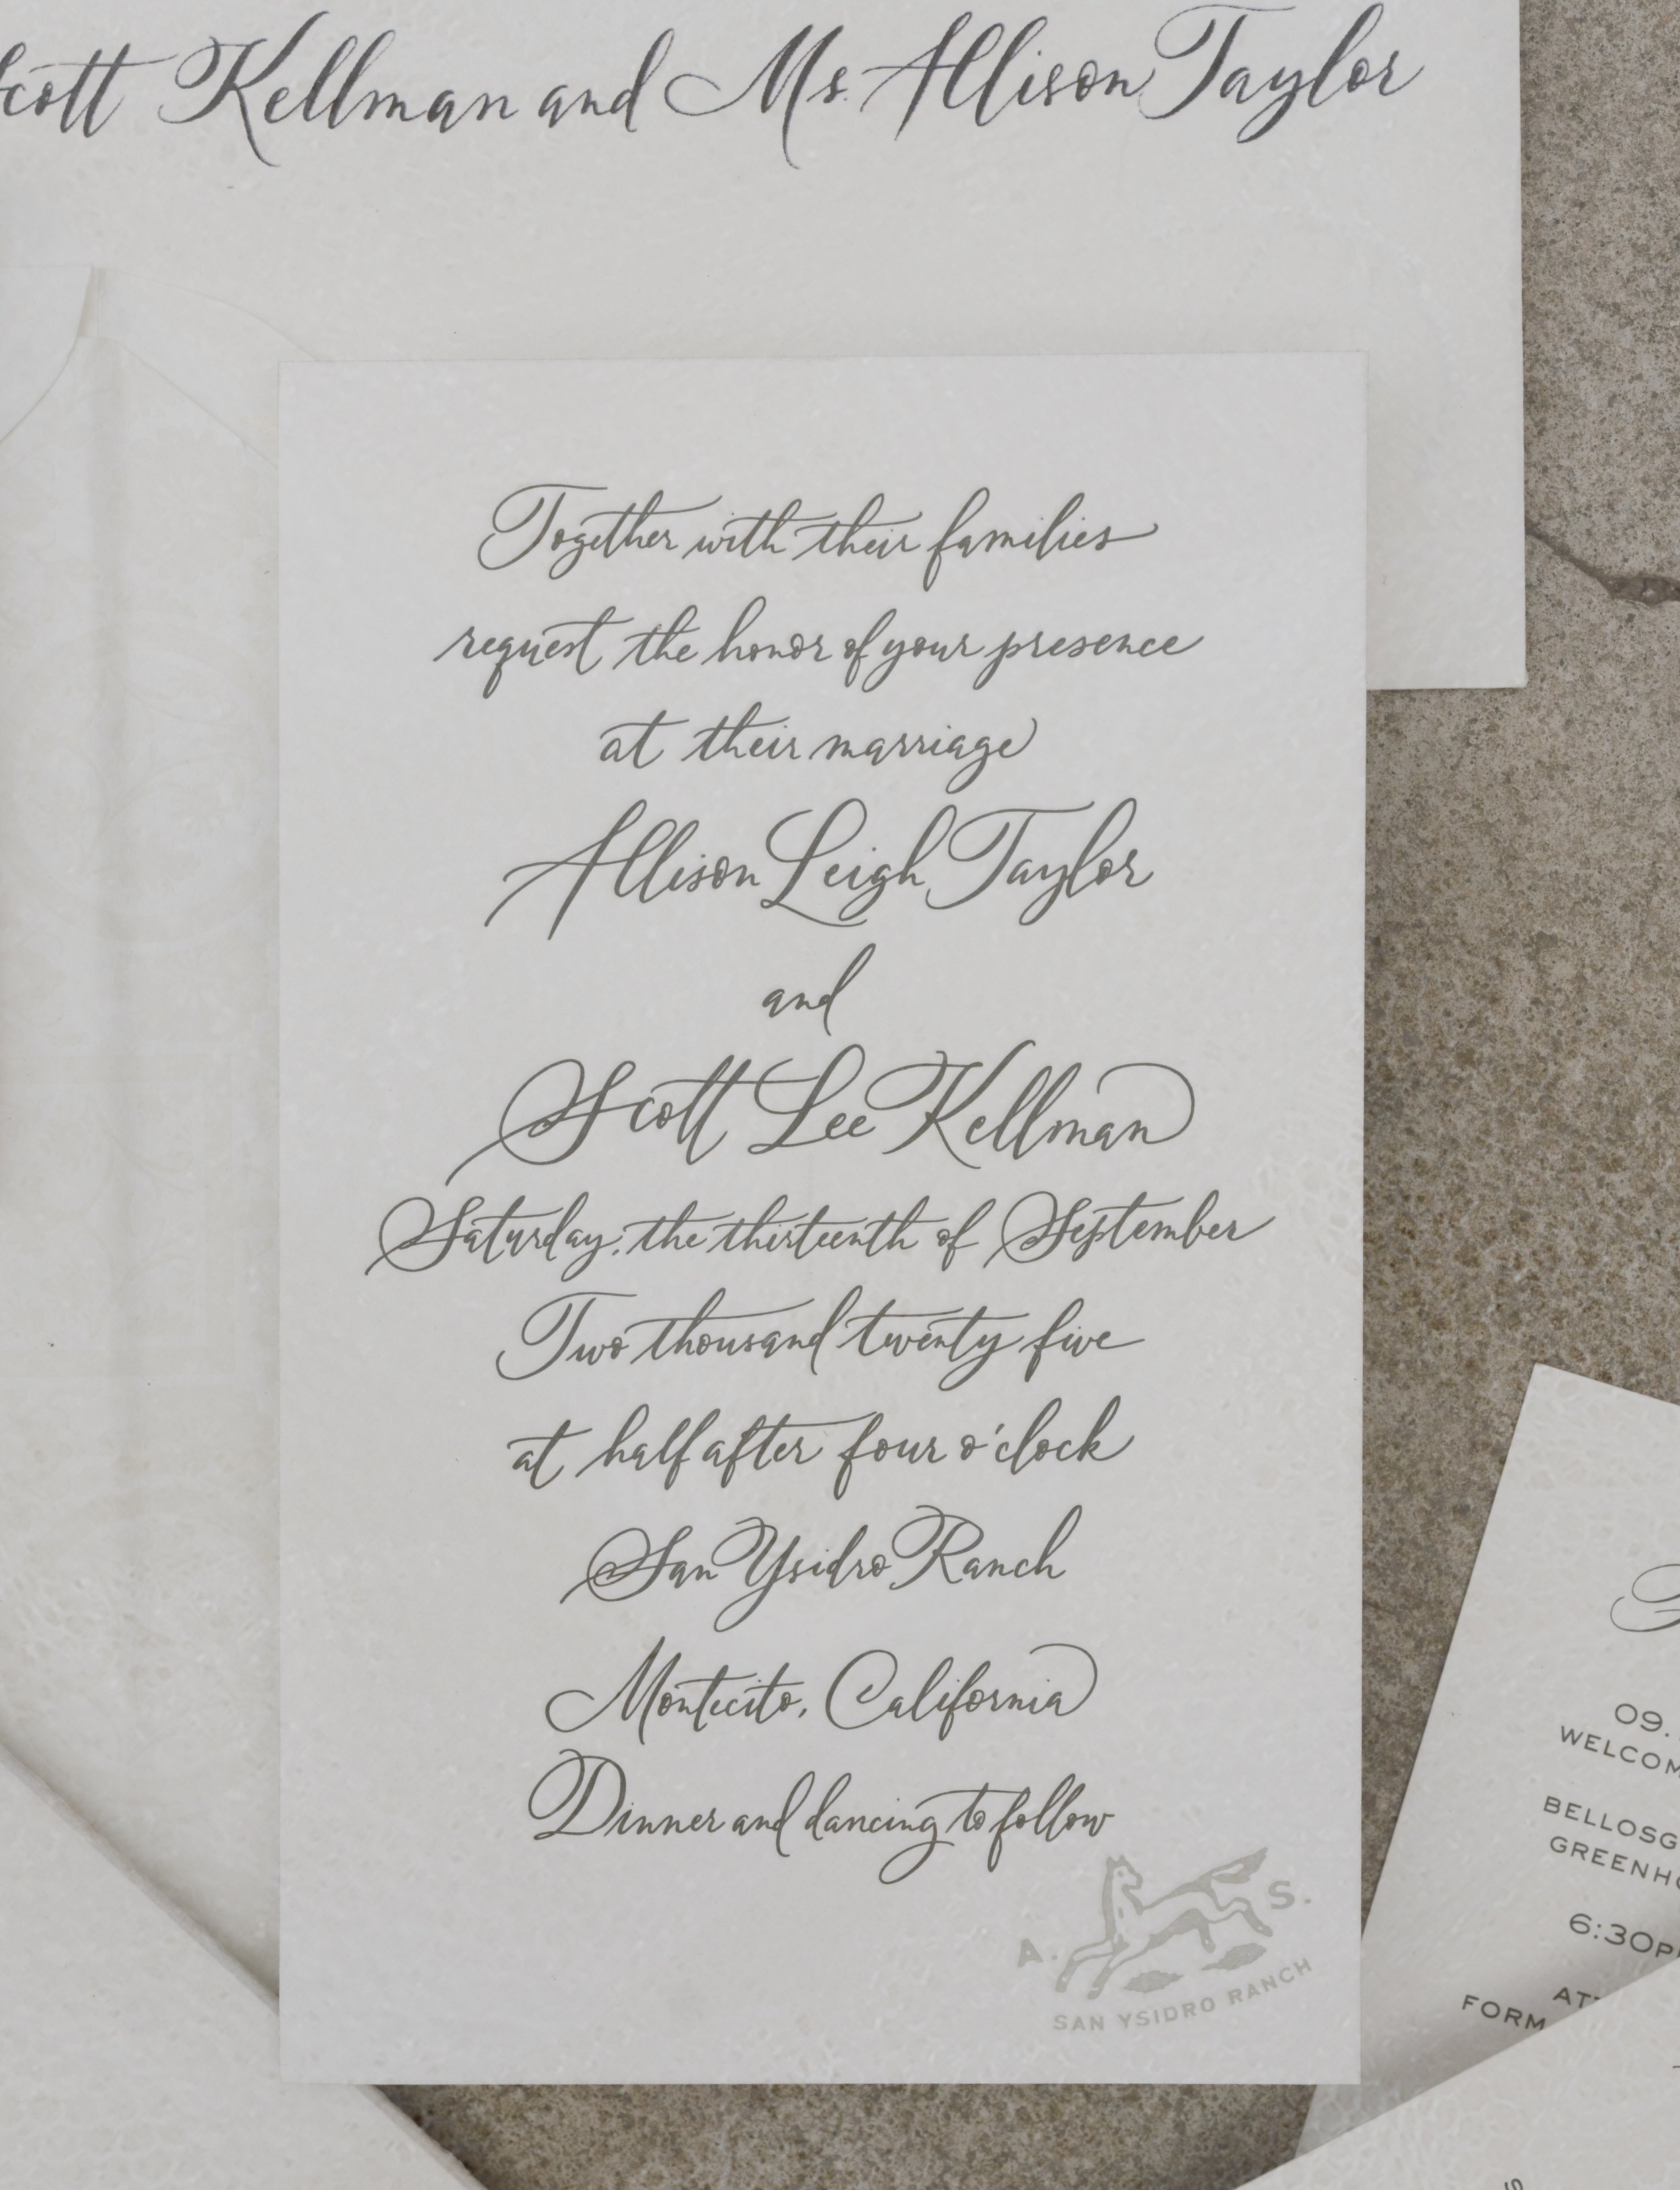 Kellman and Ms. Allison Taylor
Together with their families
request the honor of your presence
at their marriage
Allison Leigh Taylor
and
Scott Lee Kellman
Saturday, the thirteenth of September
Two thousand twenty five
at half after four o'clock
San Ysidro Ranch
Montecito, California
Dinner and dancing to follow
A. S.
SAN YSIDRO RANCH
09.
WELCOM
BELLOSG
GREENHO
6:30P
AT
FORM